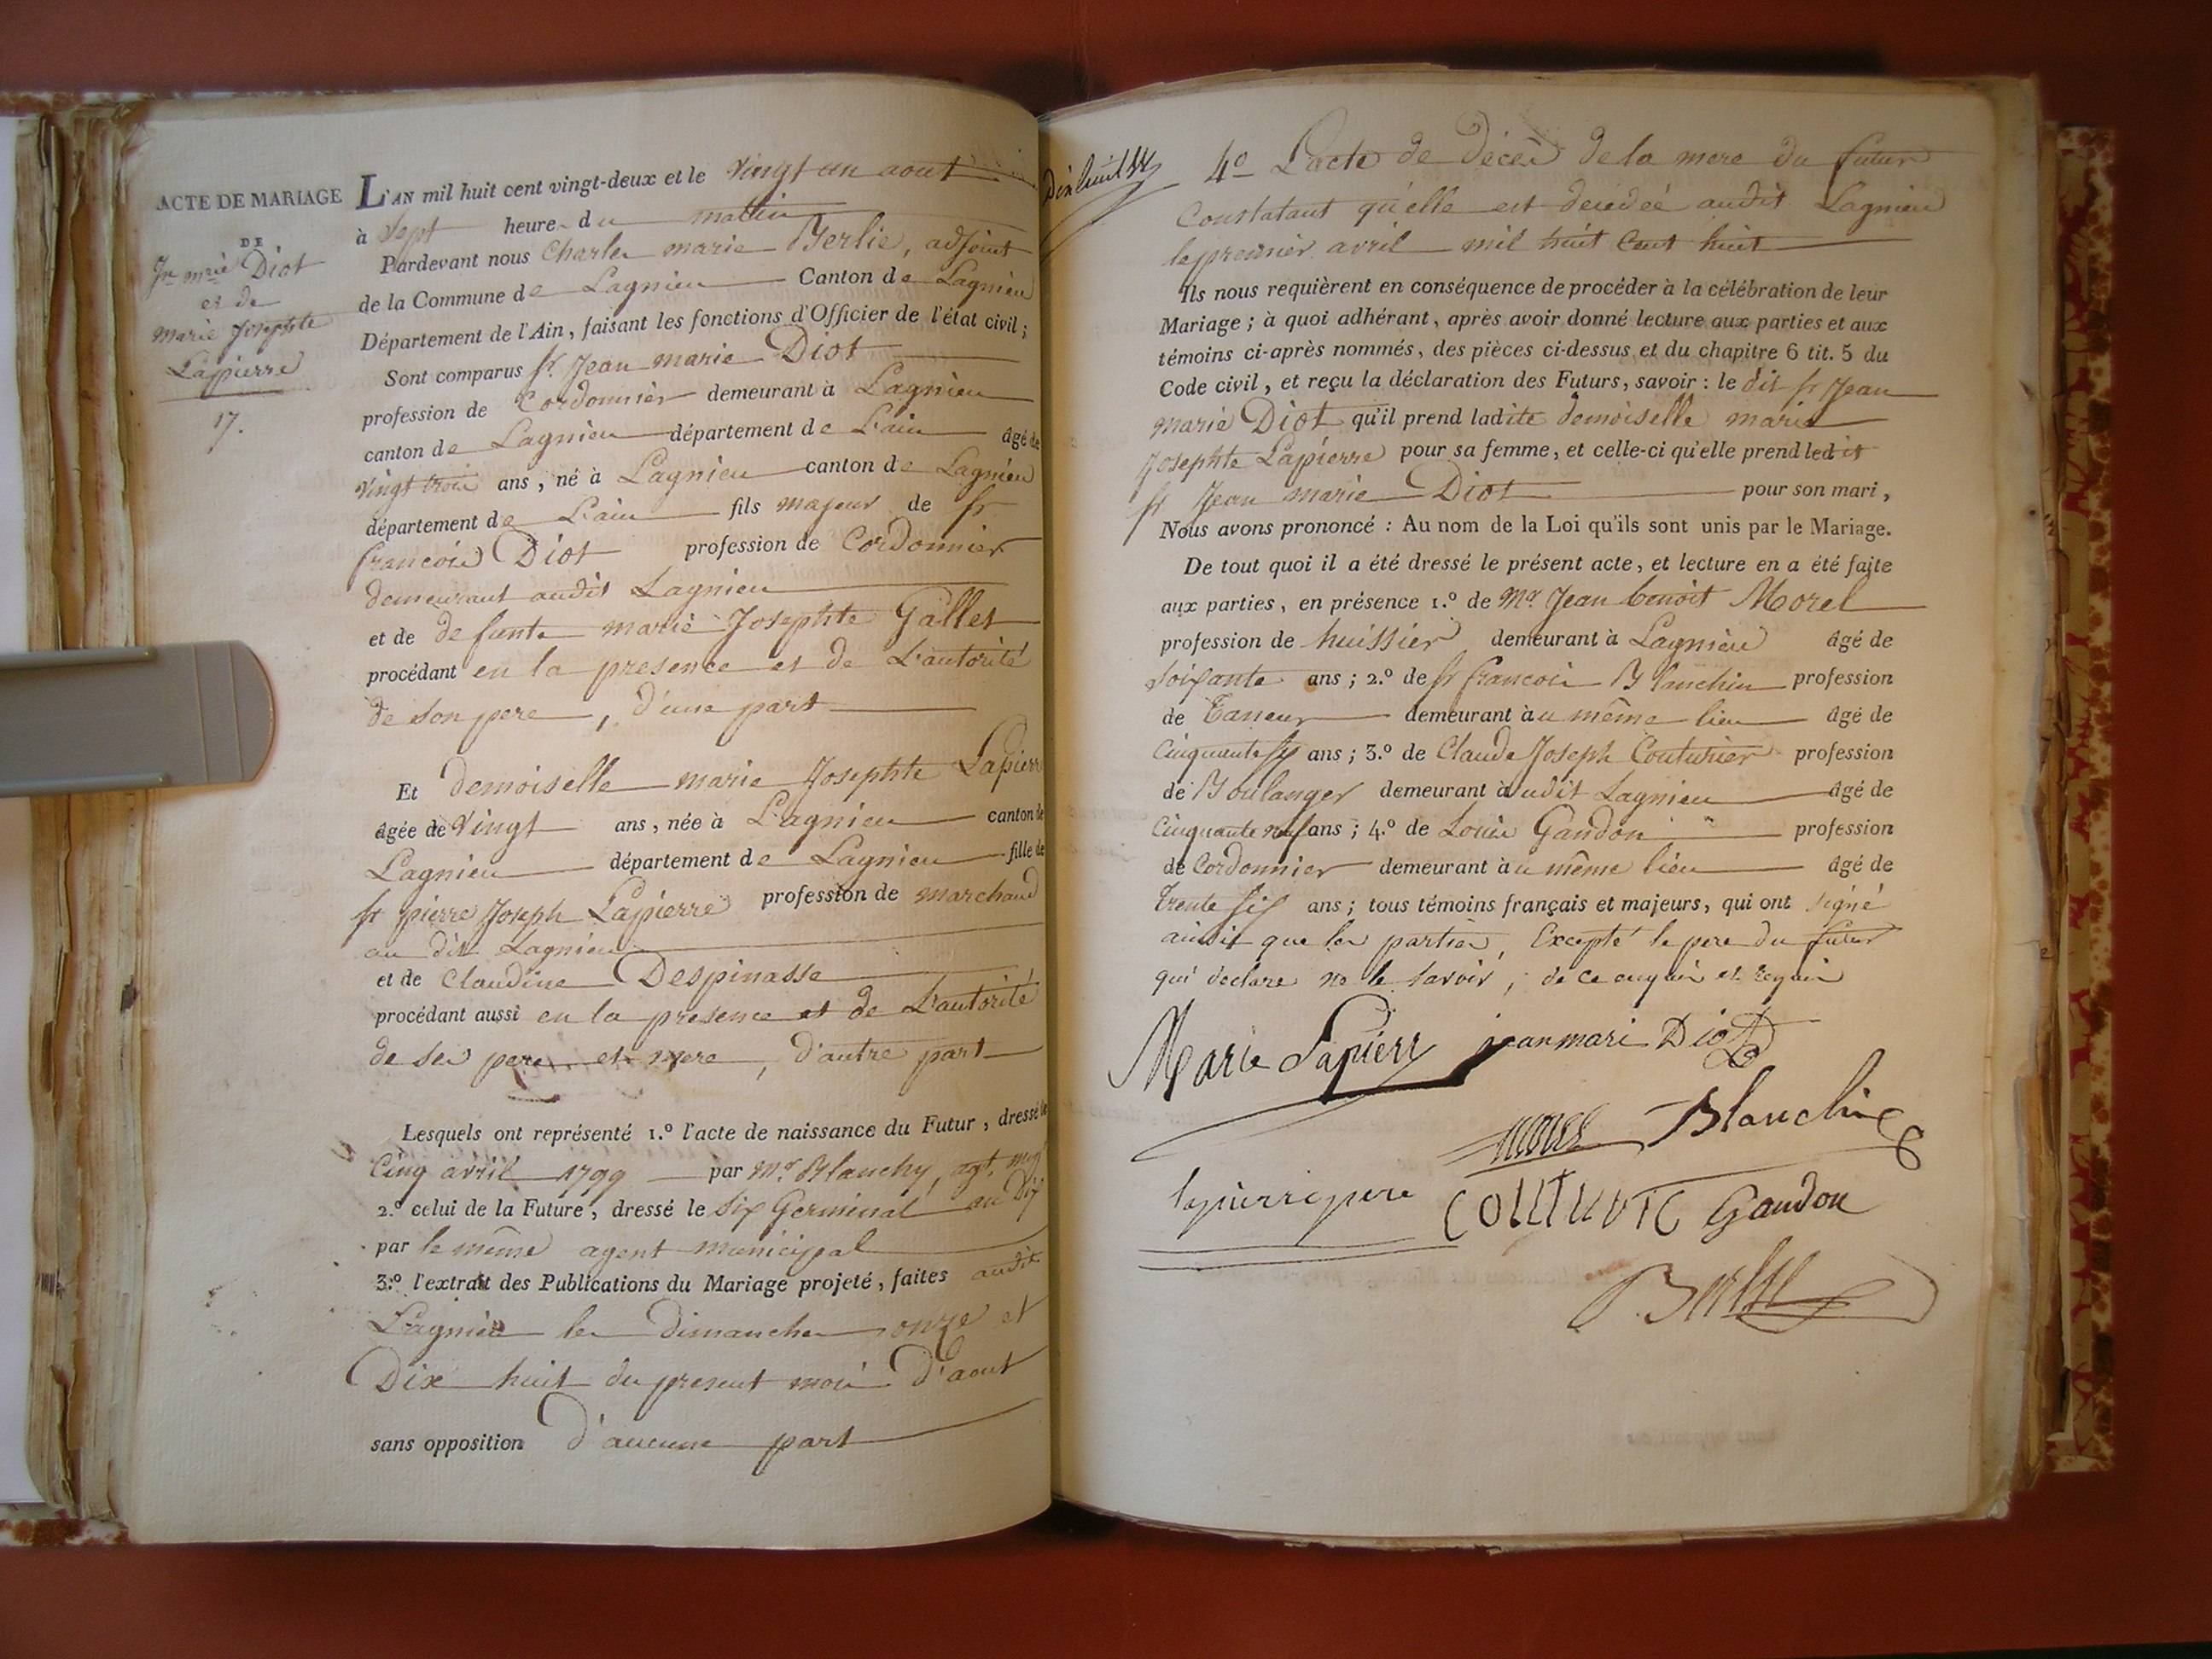 ACTE DE MARIAGE
DE
Jn mie Diot
et de
marie Josephte
Lapierre
17.
L'AN mil huit cent vingt-deux et le vingt un aout
à sept heure du matin
Pardevant nous Charles marie Berlie, adjoint
de la Commune de Lagnieu Canton de Lagnieu
Département de l'Ain, faisant les fonctions d'Officier de l'état civil;
Sont comparus sr. Jean marie Diot
profession de Cordonnier demeurant à Lagnieu
canton de Lagnieu département de L'ain âgé de
vingt trois ans, né à Lagnieu canton de Lagnieu
département de L'ain fils majeur de sr
francois Diot profession de Cordonnier
demeurant audit Lagnieu
et de defunte marie Josephte Gallet
procédant en la presence et de L'autorité
de son pere, d'une part
Et demoiselle marie Josephte Lapierre
âgée de Vingt ans, née à Lagnieu canton de
Lagnieu département de Lagnieu fille de
sr pierre Joseph Lapierre profession de marchand
au dit Lagnieu
et de Claudine Despinasse
procédant aussi en la presence et de L'autorité
de ses pere et mere, d'autre part
Lesquels ont représenté 1.º l'acte de naissance du Futur, dressé le
Cinq avril 1799 par Mr. Blanchy, agt. mpl
2.º celui de la Future, dressé le six Germinal an Dix
par le même agent municipal
3.º l'extrait des Publications du Mariage projeté, faites audit
Lagnieu les dimanches onze et
Dix huit du present mois d'aout
sans opposition d'aucune part
Dix huit
4º L'acte de décès de la mere du futur
Constatant qu'elle est décédée audit Lagnieu
le premier avril mil huit Cent huit
Ils nous requièrent en conséquence de procéder à la célébration de leur
Mariage; à quoi adhérant, après avoir donné lecture aux parties et aux
témoins ci-après nommés, des pièces ci-dessus et du chapitre 6 tit. 5 du
Code civil, et reçu la déclaration des Futurs, savoir: le dit sr Jean
marie Diot qu'il prend ladite demoiselle marie
Josephte Lapierre pour sa femme, et celle-ci qu'elle prend ledit
sr Jean marie Diot pour son mari,
Nous avons prononcé: Au nom de la Loi qu'ils sont unis par le Mariage.
De tout quoi il a été dressé le présent acte, et lecture en a été faite
aux parties, en présence 1.º de Mr Jean benoit Morel
profession de huissier demeurant à Lagnieu âgé de
soixante ans; 2.º de sr francois Blanchin profession
de Taneur demeurant au même lieu âgé de
Cinquante six ans; 3.º de Claude Joseph Couturier profession
de Boulanger demeurant audit Lagnieu âgé de
Cinquante neuf ans; 4.º de Louis Gandon profession
de Cordonnier demeurant au même lieu âgé de
Trente six ans; tous témoins français et majeurs, qui ont signé
ainsi que les parties, Excepté le pere du futur
qui declare ne le savoir, de ce enquis et requis
Marie Lapierr jeanmari Diot
morel Blanchin
lapierre pere Couturie Gandon
Berlie